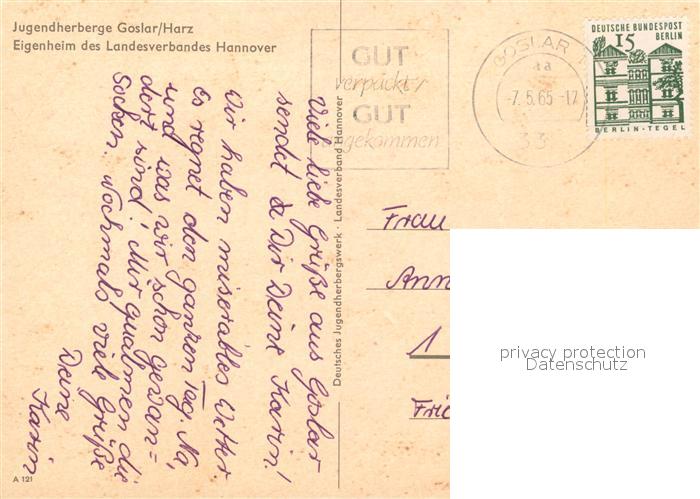 Jugendherberge Goslar/Harz
Eigenheim des Landesverbandes Hannover
Viele liebe Grüße aus Goslar
sendet Dir Deine Karin!
Wir haben miserables Wetter
Es regnet den ganzen Tag. Na,
und was wir schon gewan=
dert sind! Mir qualmen die
Socken. Nochmals viele Grüße
Deine
Karin
A 121
Deutsches Jugendherbergswerk · Landesverband Hannover
GUT
verpackt/
GUT
angekommen
GOSLAR 1
aa
-7.5.65-17
33
DEUTSCHE BUNDESPOST
15 BERLIN
BERLIN-TEGEL
Frau
Ann
1
Frie
privacy protection
Datenschutz